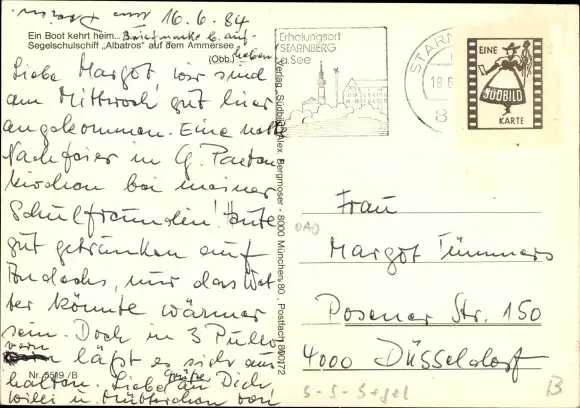 16.6.84
Ein Boot kehrt heim... Briefmarke b. auf-
Segelschulschiff „Albatros“ auf dem Ammersee heben!
(Obb.)
Liebe Margot, wir sind
am Mittwoch gut hier
angekommen. Eine nette
Nachfeier in G. Parten
kirchen bei meiner
Schulfreundin! Heute
gut getrunken auf
, nur das Wet
ter könnte wärmer
sein. Doch in 3 Pullo
vern läßt es sich aus
halten. Liebe Grüße an Dich
Willi u. Mütterchen von
Nr. 5519 /B
Verlag „Südbild“ Alex. Bergmoser - 8000 München 80 , Postfach 800172
Erholungsort
STARNBERG
a.See
STARN
18.6
8
EINE
SÜDBILD
KARTE
Frau
Margot Tümmers
Posener Str. 150
4000 Düsseldorf
S-S-Segel
B